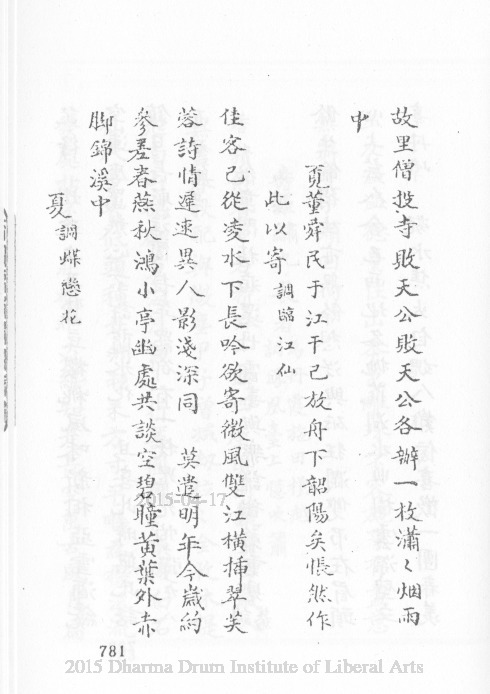 故里僧投寺敗天公敗天公各辦一枚瀟〻烟雨
中
覓董舜民于江干已放舟下韶陽矣悵然作
此以寄 調臨江仙
佳客已從凌水下長吟欲寄微風雙江橫插翠芙
蓉詩情遲速異人影淺深同 莫遣明年今歲約
參差春燕秋鴻小亭幽處共談空碧瞳黃葉外赤
脚錦溪中
夏 調蝶戀花
781
2015-04-17
2015 Dharma Drum Institute of Liberal Arts